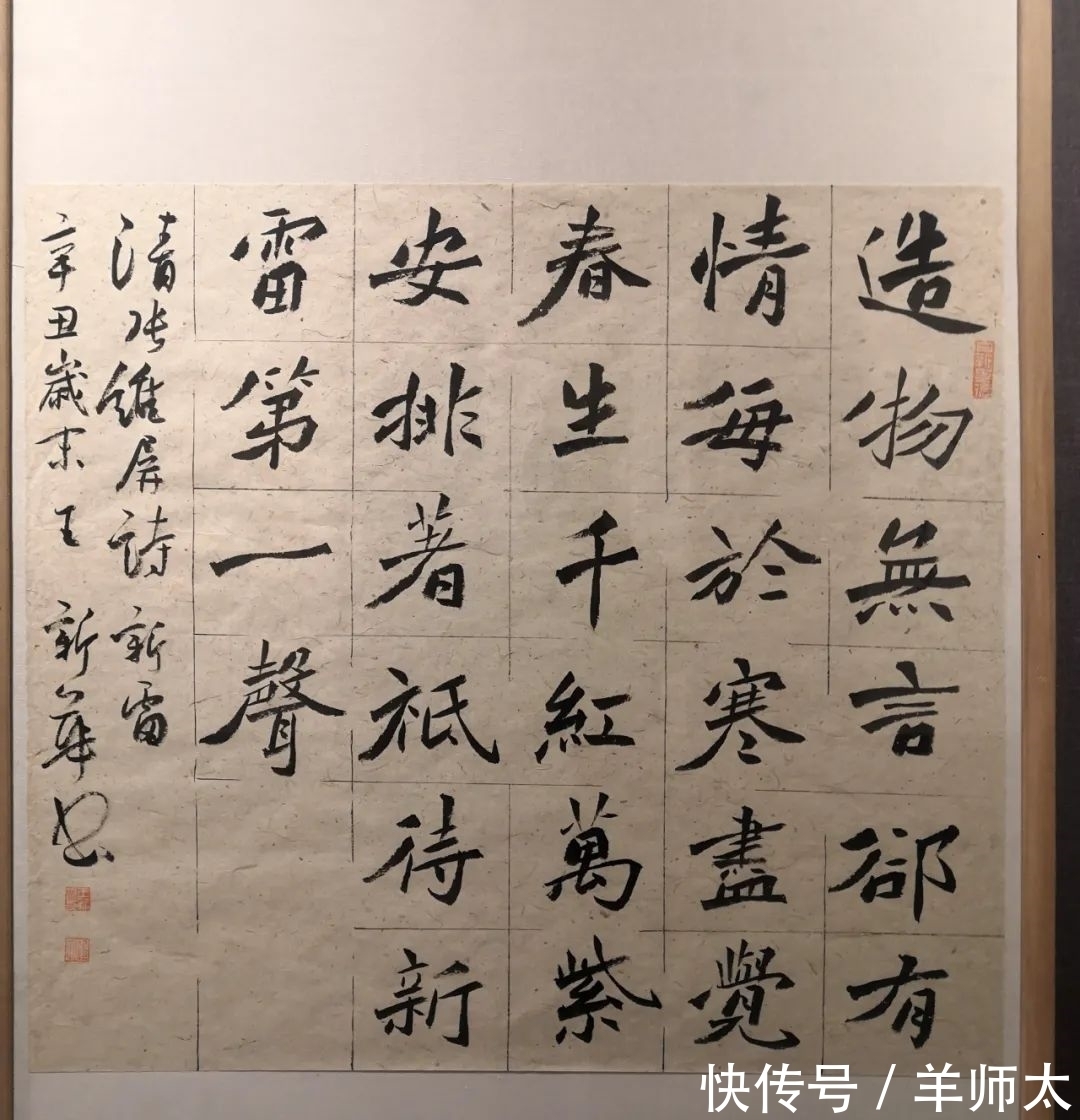 造物無言卻有
情每於寒盡覺
春生千紅萬紫
安排著祇待新
雷第一聲
清張維屏詩新雷
辛丑歲末王新華書
快传号 / 羊师太